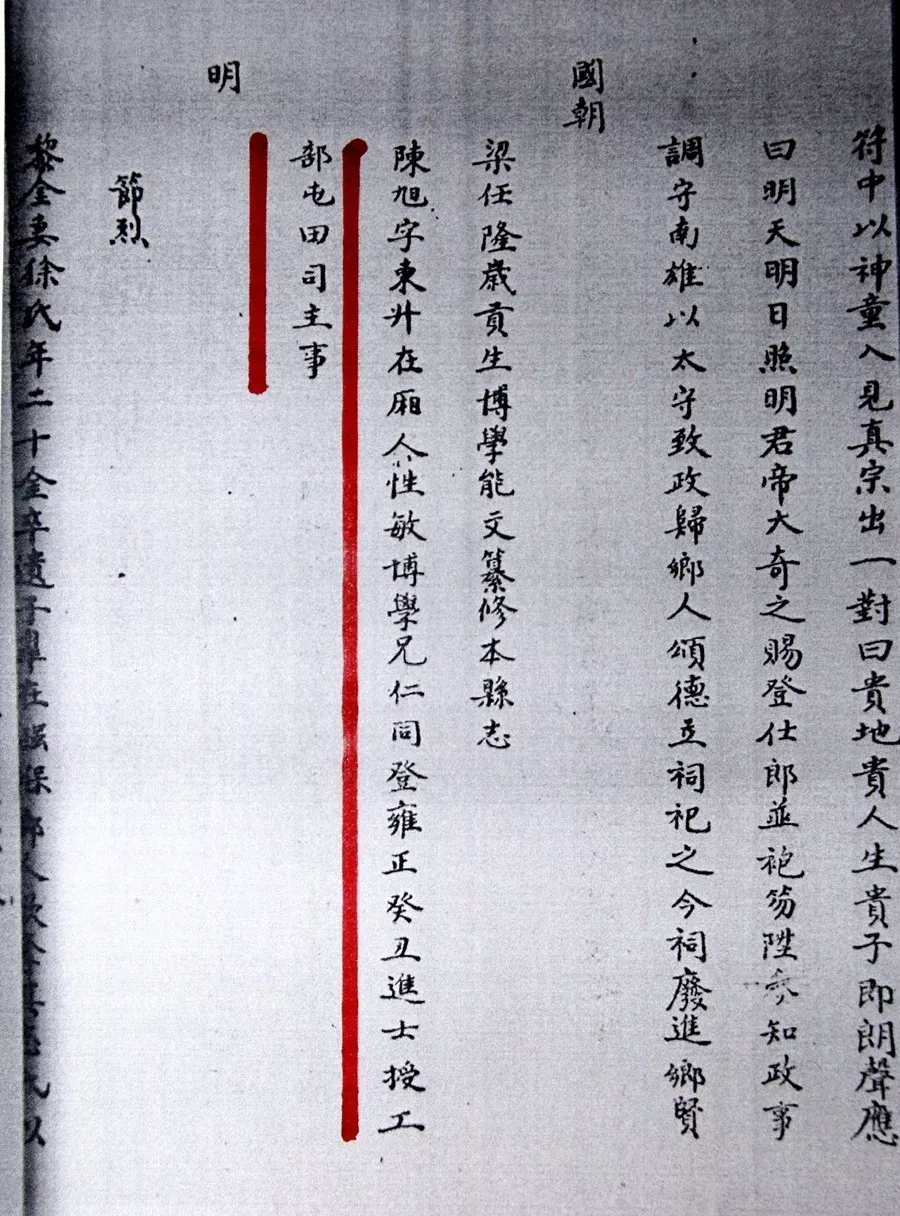 符中以神童入見真宗出一對曰貴地貴人生貴子即朗聲應
曰明天明日照明君帝大奇之賜登仕郎並袍笏陞參知政事
調守南雄以太守致政歸鄉人頌德立祠祀之今祠廢進鄉賢
國朝
梁任隆歲貢生博學能文纂修本縣志
陳旭字東升在廂人性敏博學兄仁同登雍正癸丑進士授工
部屯田司主事
明
節烈
黎全妻徐氏年二十全卒遺子